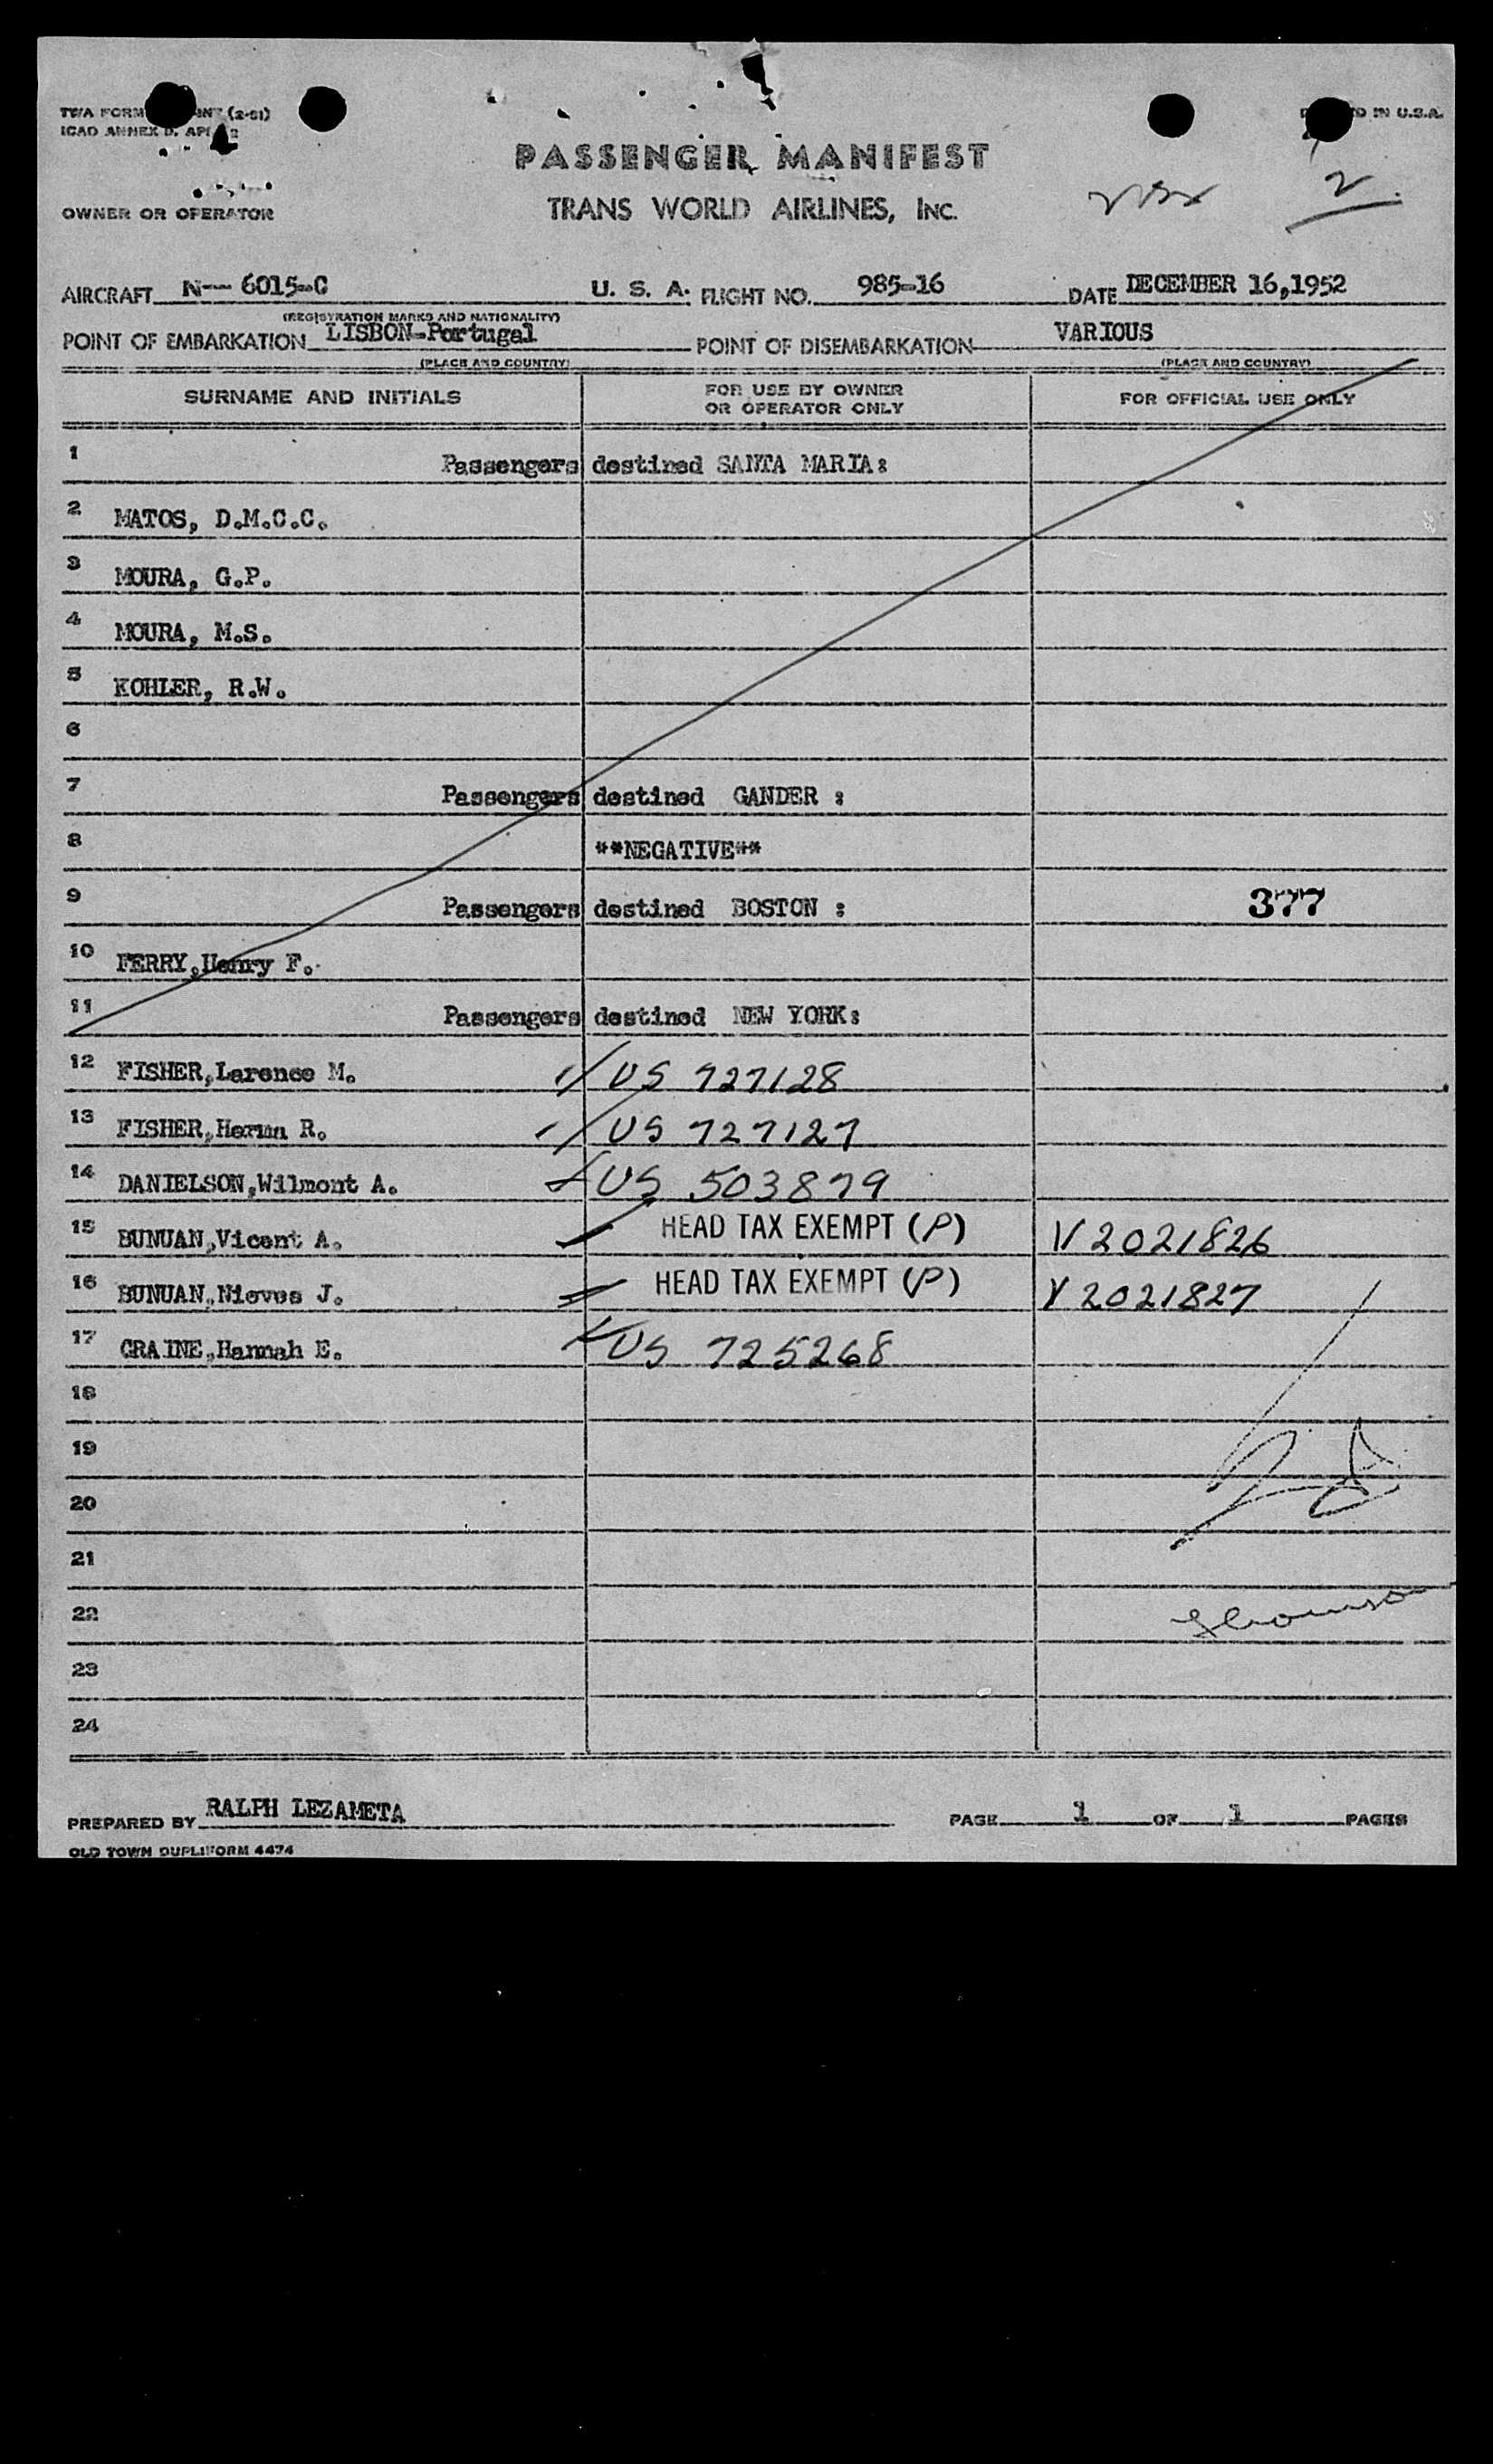 TWA FORM INT (2-51)
ICAO ANNEX 9, AP
IN U.S.A.
PASSENGER MANIFEST
TRANS WORLD AIRLINES, INC.
2
OWNER OR OPERATOR
AIRCRAFT N-- 6015-C U. S. A. FLIGHT NO. 985-16 DATE DECEMBER 16,1952
(REGISTRATION MARKS AND NATIONALITY)
POINT OF EMBARKATION LISBON-Portugal POINT OF DISEMBARKATION VARIOUS
(PLACE AND COUNTRY) (PLACE AND COUNTRY)
SURNAME AND INITIALS FOR USE BY OWNER OR OPERATOR ONLY FOR OFFICIAL USE ONLY
1 Passengers destined SANTA MARIA:
2 MATOS, D.M.C.C.
3 MOURA, G.P.
4 MOURA, M.S.
5 KOHLER, R.W.
6
7 Passengers destined GANDER :
8 **NEGATIVE**
9 Passengers destined BOSTON : 377
10 FERRY,Henry F.
11 Passengers destined NEW YORK:
12 FISHER,Larence M. US 727128
13 FISHER,Herman R. US 727127
14 DANIELSON,Wilmont A. US 503879
15 BUNUAN,Vicent A. HEAD TAX EXEMPT (P) V 2021826
16 BUNUAN,Nieves J. HEAD TAX EXEMPT (P) V 2021827
17 CRAINE,Hannah E. US 725268
18
19
20
21
22
23
24
PREPARED BY RALPH LEZAMETA PAGE 1 OF 1 PAGES
OLD TOWN DUPLIFORM 4474